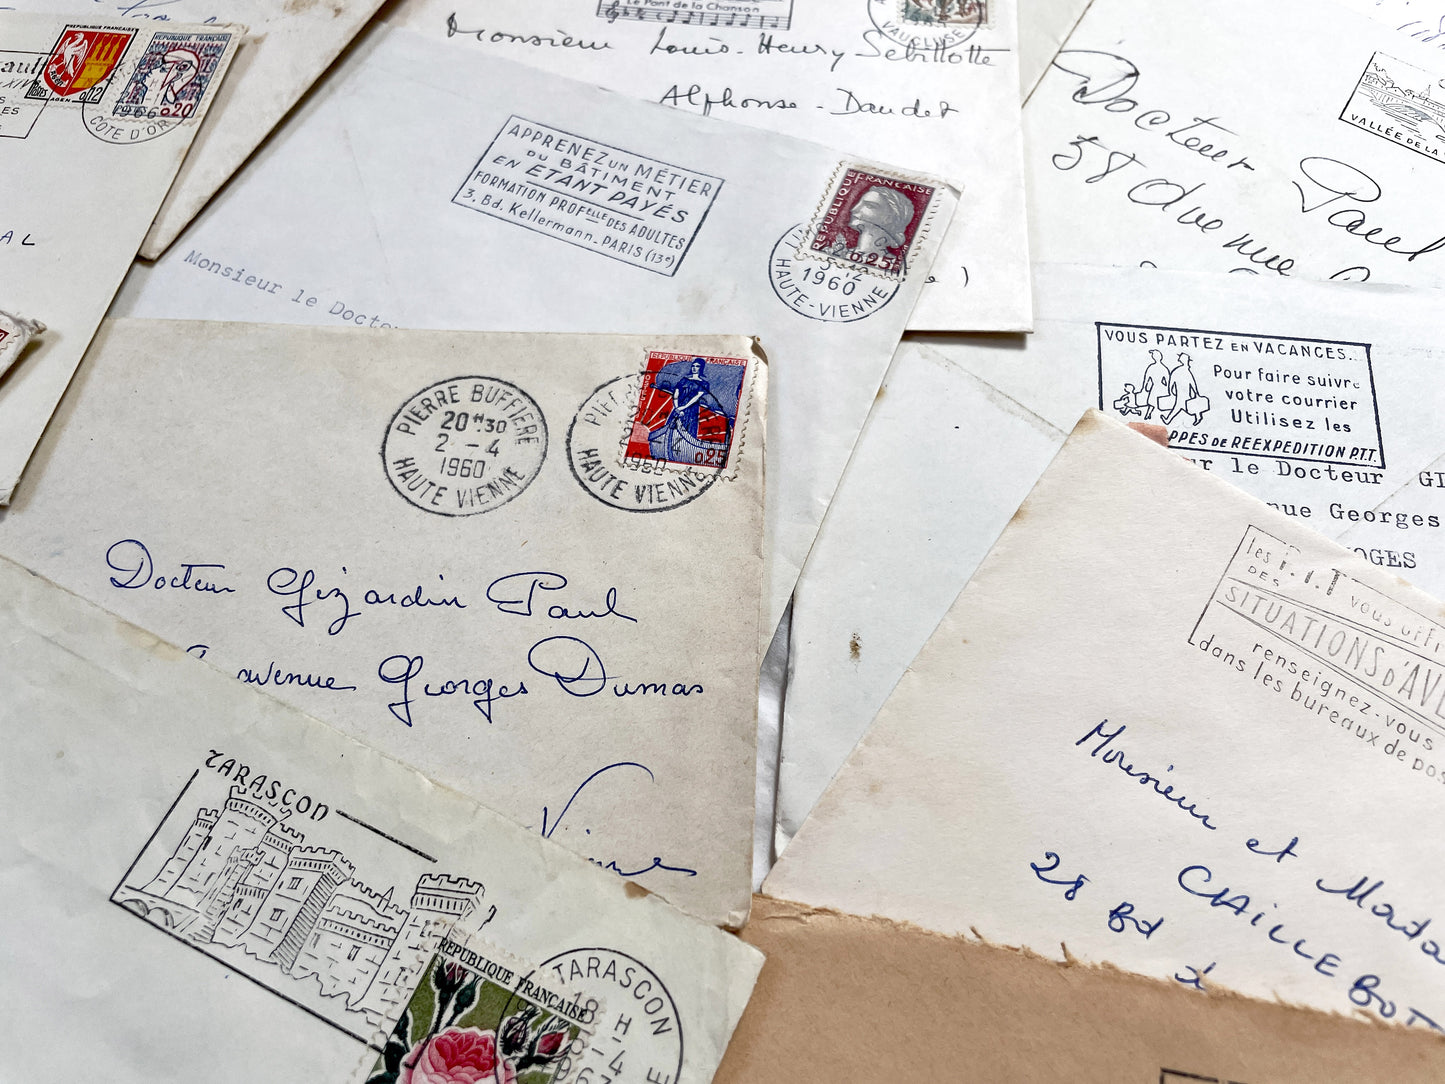 REPUBLIQUE FRANÇAISE
0,12
AGEN
REPUBLIQUE FRANÇAISE
1966
0,20
COTE D'OR
AL
Le Pont de la Chanson
VAUCLUSE
Monsieur Louis-Henry Sebillotte
Alphonse-Daudet
APPRENEZ UN MÉTIER
DU BÂTIMENT
EN ÉTANT PAYÉS
FORMATION PROFELLE DES ADULTES
3, Bd. Kellermann_PARIS (13e)
REPUBLIQUE FRANÇAISE
0,25
1960
HAUTE-VIENNE
Monsieur le Docte
Docteur Paul
58 Avenue
VALLÉE DE LA
VOUS PARTEZ EN VACANCES..
Pour faire suivre
votre courrier
Utilisez les
PPES DE REEXPEDITION P.T.T.
r le Docteur GI
nue Georges
OGES
PIERRE BUFFIERE
20H30
2 - 4
1960
HAUTE VIENNE
REPUBLIQUE FRANÇAISE
0,25
1960
HAUTE VIENNE
Docteur Gizardin Paul
avenue Georges Dumas
Vienne
les P.T.T vous offr
DES
SITUATIONS D'AVE
renseignez-vous
dans les bureaux de pos
Monsieur et Mada
CAILLEBOT
28 Bd
à
TARASCON
REPUBLIQUE FRANÇAISE
TARASCON
18 H
-4